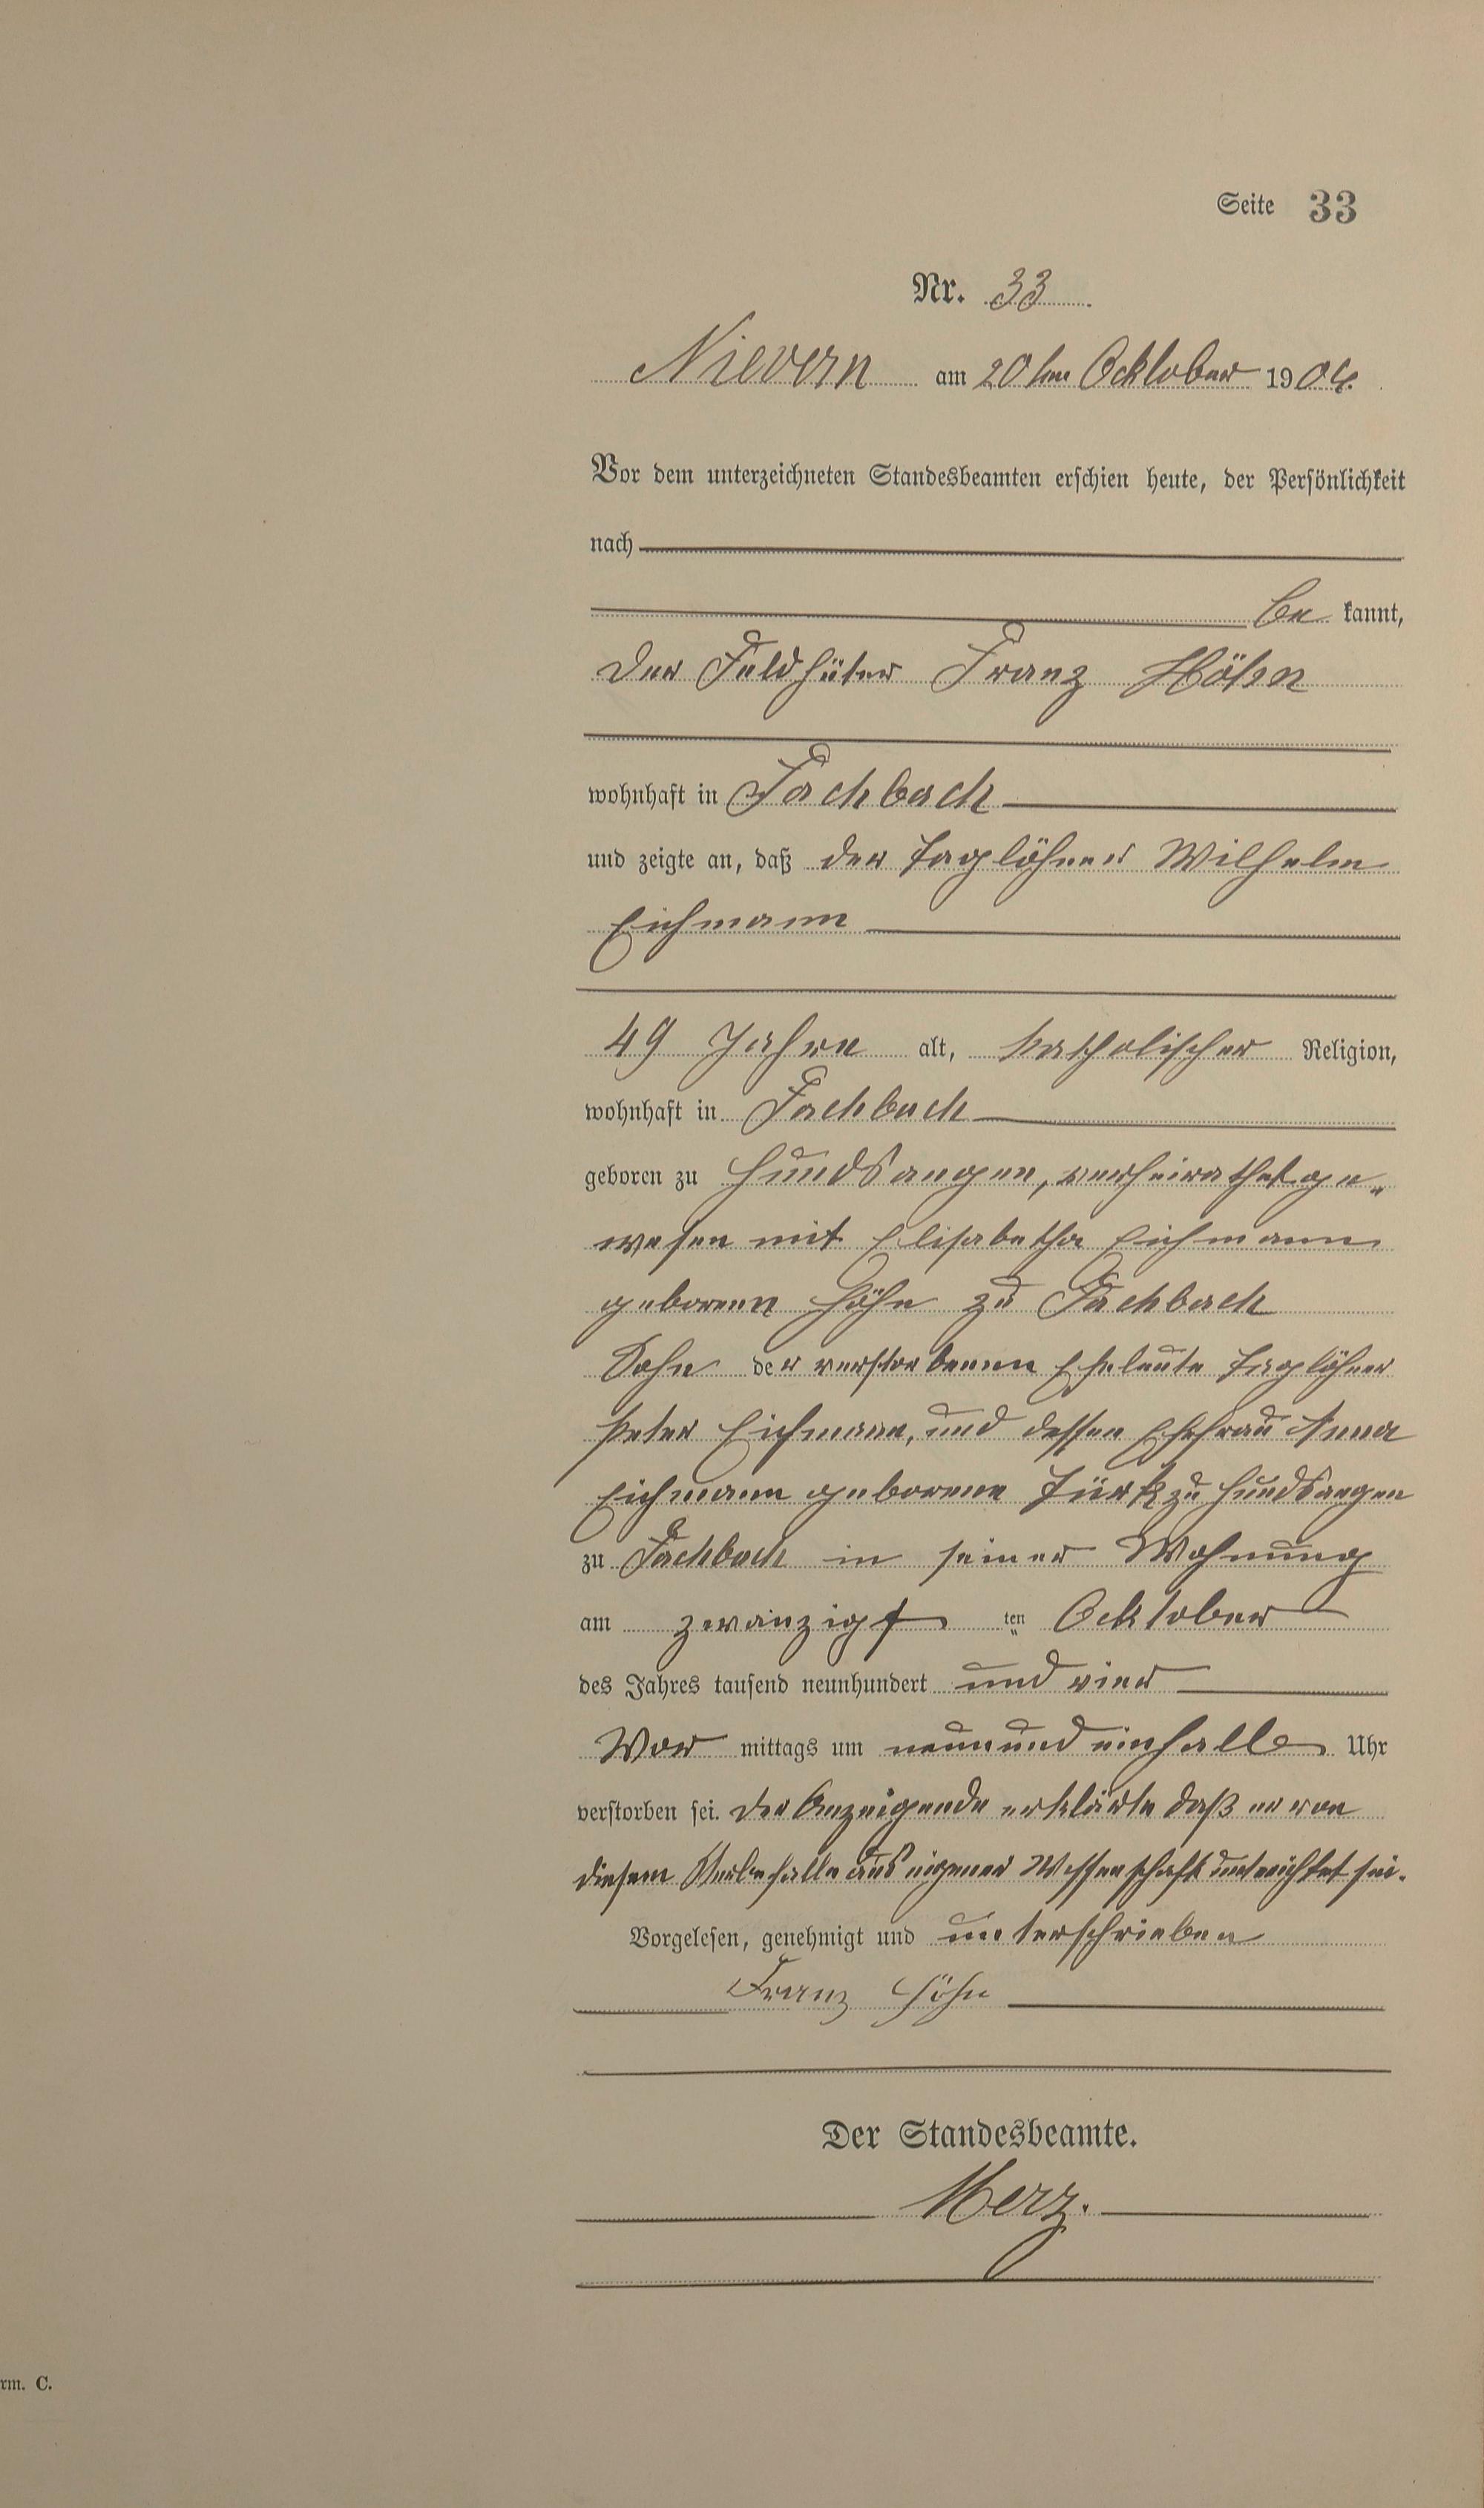 Seite 33
Nr. 33
Nievern am 20ten Ocktober 1904.
Vor dem unterzeichneten Standesbeamten erschien heute, der Persönlichkeit
nach
be kannt,
der Feldhüter Franz Höhn
wohnhaft in Fachbach
und zeigte an, daß der Taglöhner Wilhelm
Eichmann
49 Jahre alt, katholischer Religion,
wohnhaft in Fachbach
geboren zu Hundsangen, verheirathet ge„
wesen mit Elisabetha Eichmann
geboren Höhn zu Fachbach
Sohn der verstorbenen Eheleute Taglöhner
Peter Eichmann, und dessen Ehefrau Anna
Eichmann geborene Türk zu Hundsangen
zu Fachbach in seiner Wohnung
am zwanzigs ten Ocktober
des Jahres tausend neunhundert und vier
Vor mittags um neun und einhalb Uhr
verstorben sei. Der Anzeigende erklärte daß er von
diesem Sterbefalle aus eigener Wissenschaft unterrichtet sei.
Vorgelesen, genehmigt und unterschrieben
Franz Höhn
Der Standesbeamte.
Merz.
rm. C.